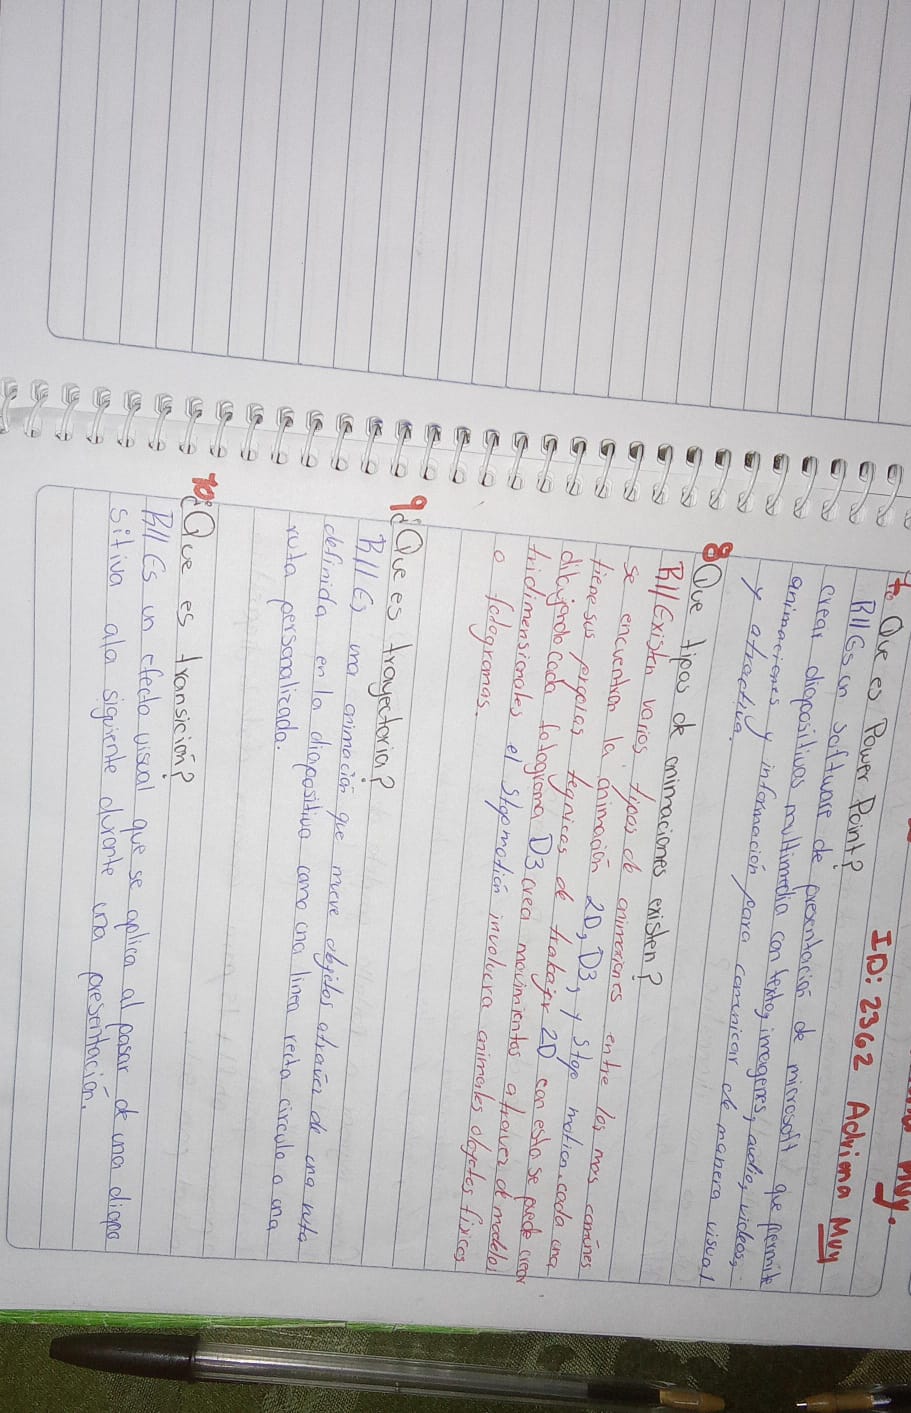 Muy.
ID: 2362 Adriana Muy
7. Que es Power Point?
R// Es un software de presentación de microsoft que permite
crear diapositivas multimedia con texto, imagenes, audio, videos,
animaciones y información para comunicar de manera visual
y atractiva.
8 Que tipos de animaciones existen?
R// Existen varios tipos de animaxiones entre las mas comúnes
se encuentran la animación 2D, D3, y stop motion cada una
tiene sus propias tegnicas de trabajar 2D con esta se puede crear
dibujando cada fotograma D3 crea movimientos a traves de modelos
tridimensionales el stopmotión involucra animarles objetos físicos
o fotogramas.
9¿Que es trayectoria?
R// Es una animación que mueve objetos através de una ruta
definida en la diapositiva como una linea recta circulo o una
ruta personalizada.
10¿Que es transición?
R// Es un efecto visual que se aplica al pasar de una diapo
sitiva ala siguiente durante una presentación.